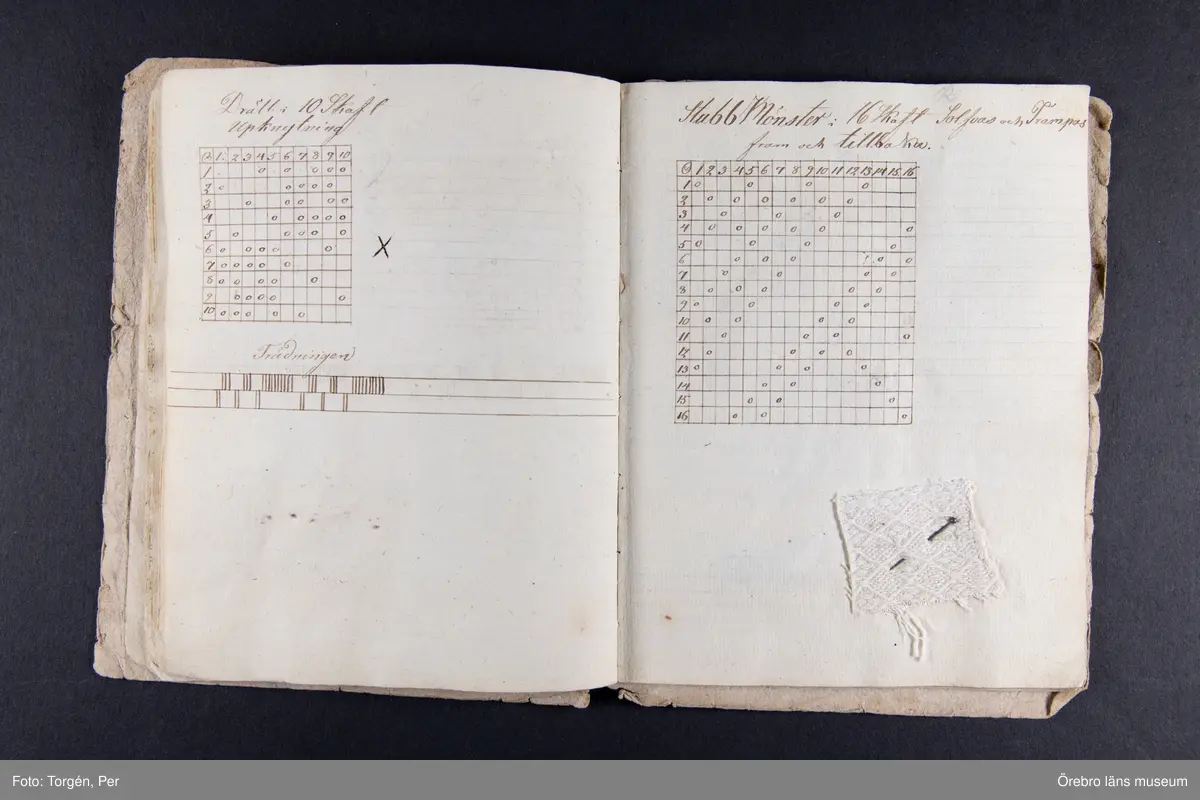 Dräll i 10 Skaft
Upknytning
1 2 3 4 5 6 7 8 9 10
1
2
3
4
5
6
7
8
9
10
X
Trädningen
Stubb Mönster i 16 Skaft Solfvas och Trampas
fram och tillbaka.
1 2 3 4 5 6 7 8 9 10 11 12 13 14 15 16
1
2
3
4
5
6
7
8
9
10
11
12
13
14
15
16
Foto: Torgén, Per
Örebro läns museum